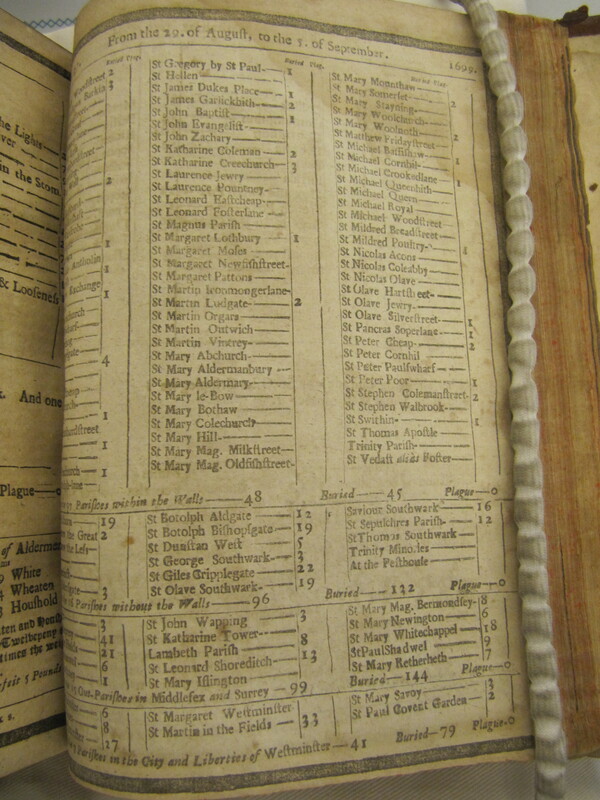 From the 29. of August, to the 5. of September. 1699.
Buried Plag.
Buried Plag.
Buried Plag.
Woodstreet 2
Barkin 3
2
1
Antholin
1
Exchange
1
4
1
1
1
St Gregory by St Paul 1
St Hellen
St James Dukes Place 1
St James Garlickhith 2
St John Baptist 1
St John Evangelist
St John Zachary
St Katharine Coleman 2
St Katharine Creechurch 3
St Laurence Jewry
St Laurence Pountney
St Leonard Eastcheap
St Leonard Fosterlane
St Magnus Parish
St Margaret Lothbury 1
St Margaret Moses
St Margaret Newfishstreet
St Margaret Pattons
St Martin Ironmongerlane
St Martin Ludgate 2
St Martin Orgars
St Martin Outwich
St Martin Vintrey
St Mary Abchurch
St Mary Aldermanbury
St Mary Aldermary
St Mary le-Bow
St Mary Bothaw
St Mary Colechurch
St Mary Hill
St Mary Mag. Milkstreet
St Mary Mag. Oldfishstreet
St Mary Mounthaw
St Mary Somerset 2
St Mary Stayning
St Mary Woolchurch 1
St Mary Woolnoth
St Matthew Fridaystreet 2
St Michael Bassishaw
St Michael Cornhil
St Michael Crookedlane 1
St Michael Queenhith
St Michael Quern
St Michael Royal
St Michael Woodstreet
St Mildred Breadstreet
St Mildred Poultry
St Nicolas Acons
St Nicolas Coleabby
St Nicolas Olave
St Olave Hartstreet
St Olave Jewry
St Olave Silverstreet 1
St Pancras Soperlane 1
St Peter Cheap 2
St Peter Cornhil
St Peter Paulswharf
St Peter Poor 1
St Stephen Colemanstreet 2
St Stephen Walbrook
St Swithin 1
St Thomas Apostle
Trinity Parish
St Vedast alias Foster
Parishes within the Walls 48 Buried 45 Plague 0
19
the Great 2
the Less
3
St Botolph Aldgate 12
St Botolph Bishopsgate 19
St Dunstan West 5
St George Southwark 3
St Giles Cripplegate 22
St Olave Southwark 19
Saviour Southwark 16
St Sepulchres Parish 12
St Thomas Southwark
Trinity Minories
At the Pesthouse
16 Parishes without the Walls 96 Buried 132 Plague 0
3
41
21
6
1
St John Wapping 3
St Katharine Tower
Lambeth Parish 8
St Leonard Shoreditch 13
St Mary Islington
St Mary Mag. Bermondsey 8
St Mary Newington 6
St Mary Whitechappel 18
St Paul Shadwel 9
St Mary Retherheth 7
Out-Parishes in Middlesex and Surrey 99 Buried 144 Plague 0
6
8
17
St Margaret Westminster
St Martin in the Fields 33
St Mary Savoy 3
St Paul Covent Garden 2
Parishes in the City and Liberties of Westminster 41 Buried 79 Plague 0
he Lights
ver
in the Stom
& Looseness
And one
Plague 0
of Aldermen
White
Wheaten
Houshold